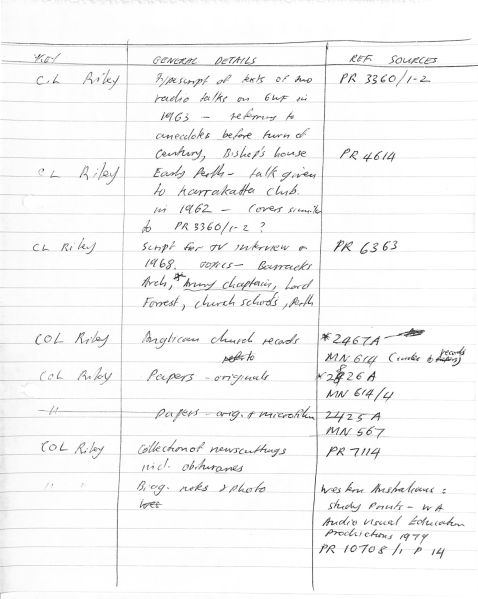 KEY GENERAL DETAILS REF SOURCES
C.L Riley Typescript of texts of two PR 3360/1-2
radio talks on 6WF in
1963 - referring to
anecdotes before turn of
century, Bishop's house
CL Riley Early Perth - talk given PR 4614
to Karrakatta club.
in 1962 - covers similar
to PR 3360/1-2 ?
CL Riley Script for TV interview on PR 6363
1968. TOPICS - Barracks
Arch, * Army chaplains, Lord
Forrest, church schools, Perth
COL Riley Anglican church records *2467A
MN 614 (index to records)
COL Riley Papers - originals *2826A
MN 614/4
-"- papers - orig. & microfilm 2425A
MN 567
COL Riley Collection of newscuttings PR 7114
incl. obituaries
" " Biog. notes & photo Western Australians:
study prints - WA
Audio Visual Education
Productions 1979
PR 10708/1 P 14